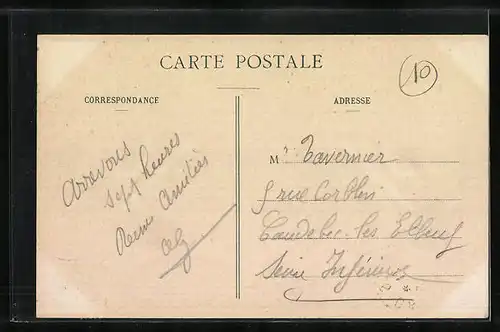 CARTE POSTALE
10
CORRESPONDANCE
ADRESSE
Arrivons
sept heures
Amitiés
Mr Tavernier
5 rue
Caudebec-les-Elbeuf
Seine Inférieure